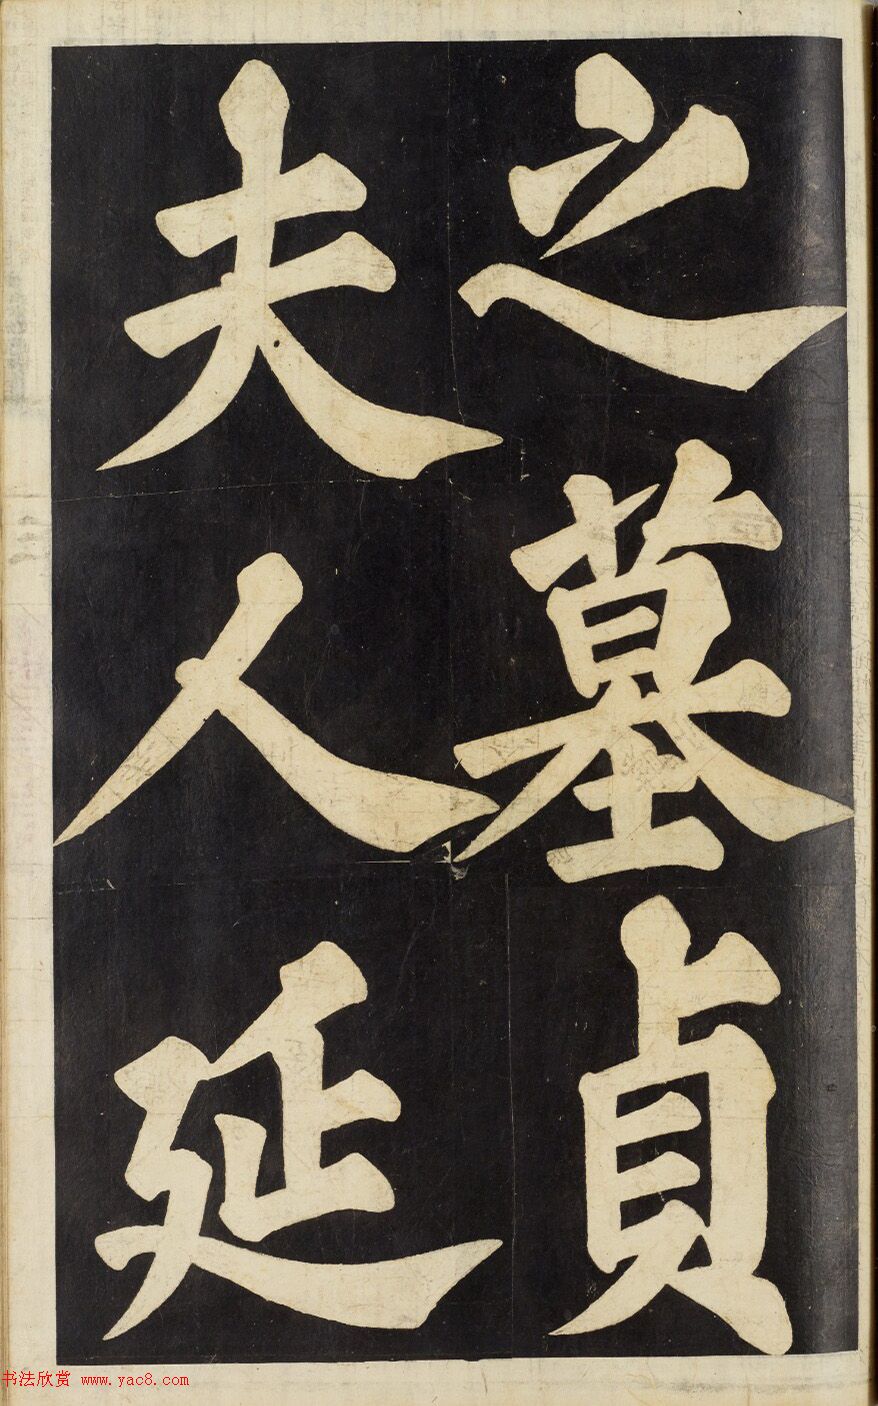 之墓貞
夫人延
书法欣赏 www.yac8.com